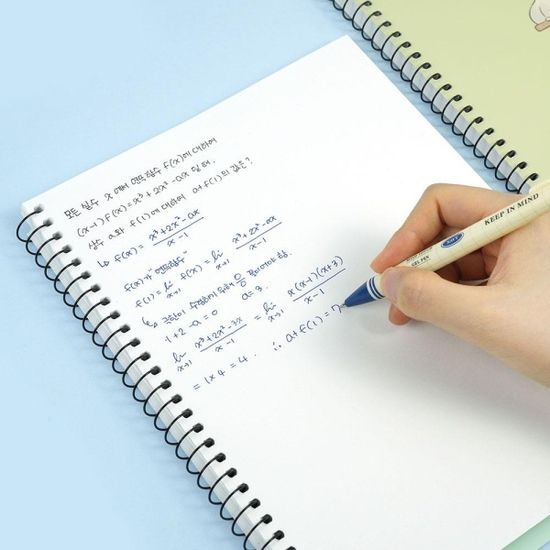 모든 실수 x에서 연속함수 f(x)에 대하여
(x-1)f(x)=x³+2x²-ax 일 때,
상수 a와 f(1)에 대하여 a+f(1)의 값은?
↳ f(x)= x³+2x²-ax / x-1
f(x)가 연속함수
f(1)= lim x→1 f(x) = lim x→1 x³+2x²-ax / x-1
↳ 극한이 존재하기 위해 0 이어야 함.
1+2-a=0 a=3.
lim x→1 x³+2x²-3x / x-1 = lim x→1 x(x-1)(x+3) / x-1
= 1×4 = 4. ∴ a+f(1)=7
KEEP IN MIND
GEL PEN